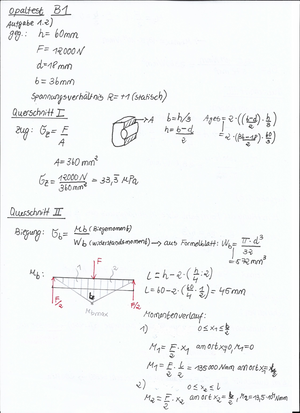 Opaltest B1
Aufgabe 1.2)
geg.: h= 60mm
F= 12000N
d=18mm
b= 36mm
Spannungsverhältnis R=+1 (statisch)
Querschnitt I
Zug: σz = F/A
→A
b=h/3
h=b-d/2
Ages = 2·((b-d/2)·h/3)
A=360mm²
σz= 12000N/360mm² = 33,3 MPa
Querschnitt III
Biegung: σb= Mb (Biegemoment)/Wb (Widerstandsmoment) → aus Formelblatt: Wb= π·d³/32
=572mm³
Mb:
F
F/2
F/2
Mbmax
L= h-2·(h/4:2)
L=60-2·(60/4·1/2) = 45mm
Momentenverlauf:
1) 0≤x1≤L/2
M1= F/2·x1 am ort x1=0, M1=0
M1= F/2·L/2 = 135000Nmm am ort x1=L/2
2) 0≤x2≤L